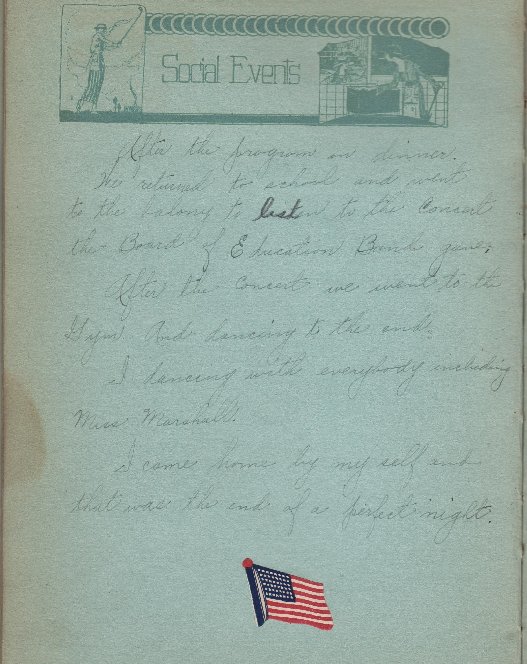 Social Events
After the program on dinner.
We returned to school and went
to the balony to listen to the Concert
the Board of Education Band gave.
After the Concert we went to the
Gym. And dancing to the end.
I dancing with everybody including
Miss Marshall.
I came home by my self and
that was the end of a perfect night.